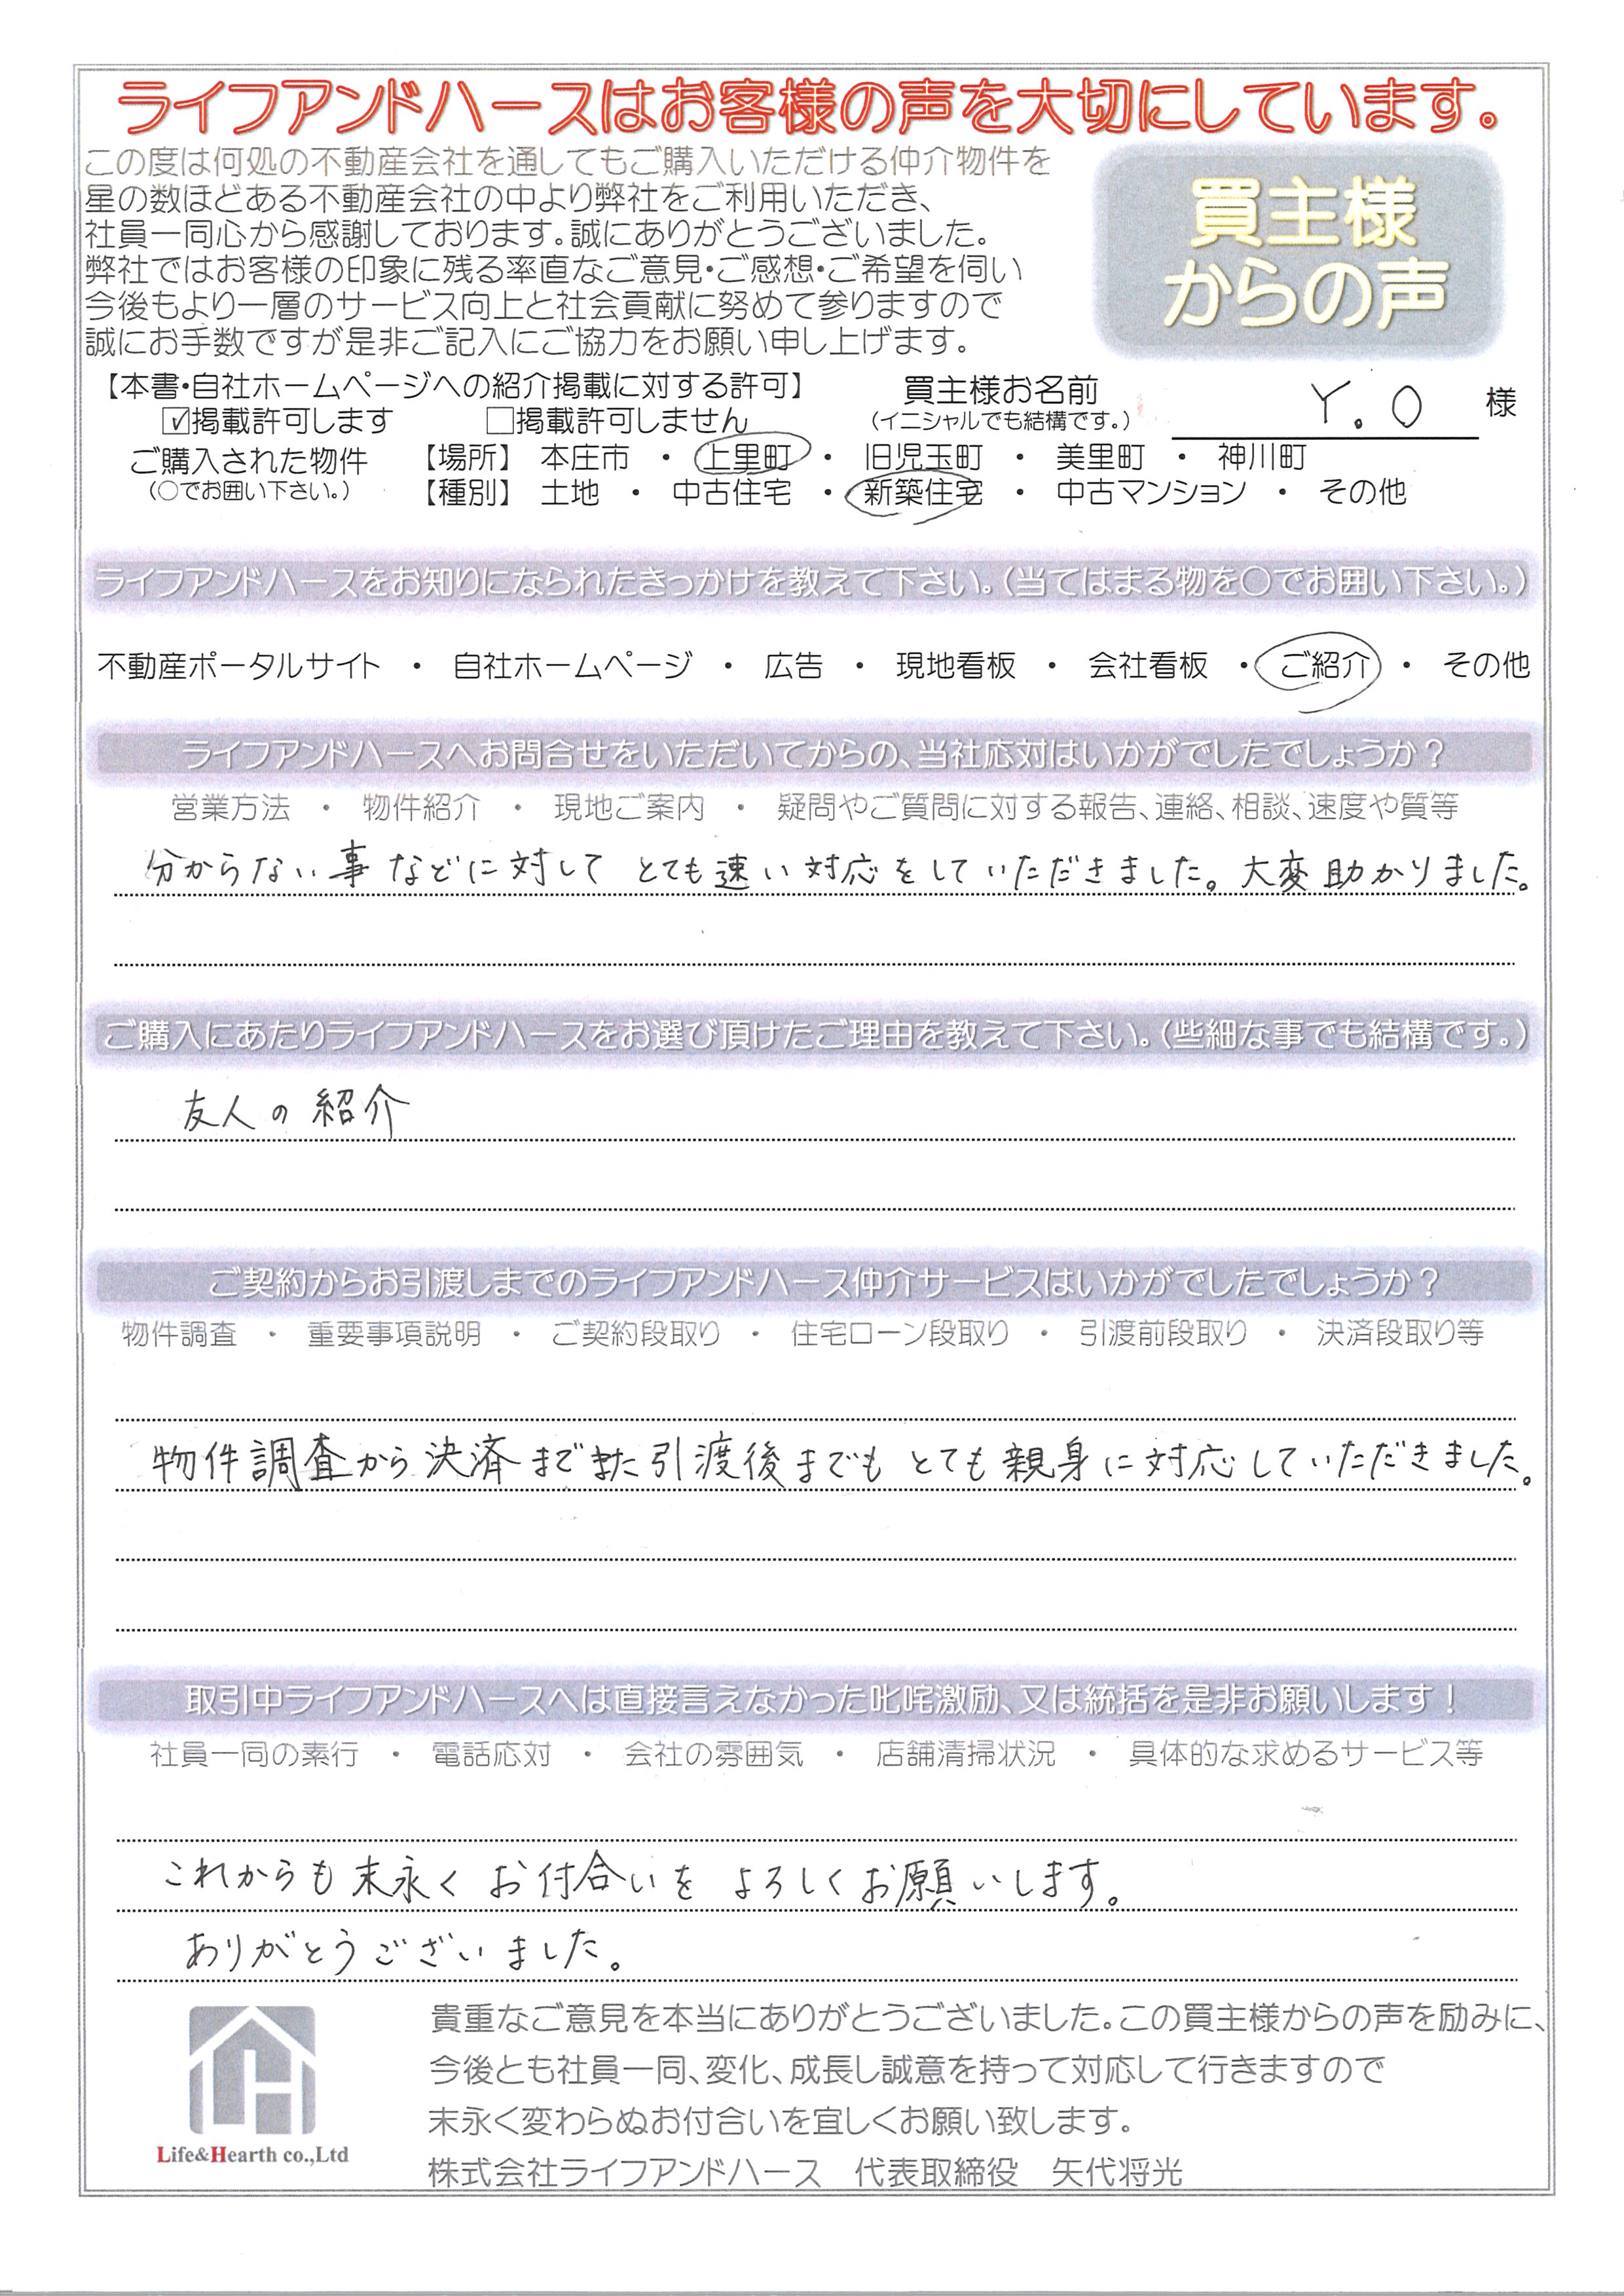 ライフアンドハースはお客様の声を大切にしています。
この度は何処の不動産会社を通してもご購入いただける仲介物件を
星の数ほどある不動産会社の中より弊社をご利用いただき、
社員一同心から感謝しております。誠にありがとうございました。
弊社ではお客様の印象に残る率直なご意見・ご感想・ご希望を伺い
今後もより一層のサービス向上と社会貢献に努めて参りますので
誠にお手数ですが是非ご記入にご協力をお願い申し上げます。
買主様
からの声
【本書・自社ホームページへの紹介掲載に対する許可】
☑掲載許可します □掲載許可しません
買主様お名前
(イニシャルでも結構です。)
Y.O 様
ご購入された物件
(○でお囲い下さい。)
【場所】 本庄市 ・ 上里町 ・ 旧児玉町 ・ 美里町 ・ 神川町
【種別】 土地 ・ 中古住宅 ・ 新築住宅 ・ 中古マンション ・ その他
ライフアンドハースをお知りになられたきっかけを教えて下さい。(当てはまる物を○でお囲い下さい。)
不動産ポータルサイト ・ 自社ホームページ ・ 広告 ・ 現地看板 ・ 会社看板 ・ ご紹介 ・ その他
ライフアンドハースへお問合せをいただいてからの、当社応対はいかがでしたでしょうか?
営業方法 ・ 物件紹介 ・ 現地ご案内 ・ 疑問やご質問に対する報告、連絡、相談、速度や質等
分からない事などに対してとても速い対応をしていただきました。大変助かりました。
ご購入にあたりライフアンドハースをお選び頂けたご理由を教えて下さい。(些細な事でも結構です。)
友人の紹介
ご契約からお引渡しまでのライフアンドハース仲介サービスはいかがでしたでしょうか?
物件調査 ・ 重要事項説明 ・ ご契約段取り ・ 住宅ローン段取り ・ 引渡前段取り ・ 決済段取り等
物件調査から決済までまた引渡後までもとても親身に対応していただきました。
取引中ライフアンドハースへは直接言えなかった叱咤激励、又は統括を是非お願いします!
社員一同の素行 ・ 電話応対 ・ 会社の雰囲気 ・ 店舗清掃状況 ・ 具体的な求めるサービス等
これからも末永くお付合いをよろしくお願いします。
ありがとうございました。
貴重なご意見を本当にありがとうございました。この買主様からの声を励みに、
今後とも社員一同、変化、成長し誠意を持って対応して行きますので
末永く変わらぬお付合いを宜しくお願い致します。
Life&Hearth co.,Ltd
株式会社ライフアンドハース 代表取締役 矢代将光